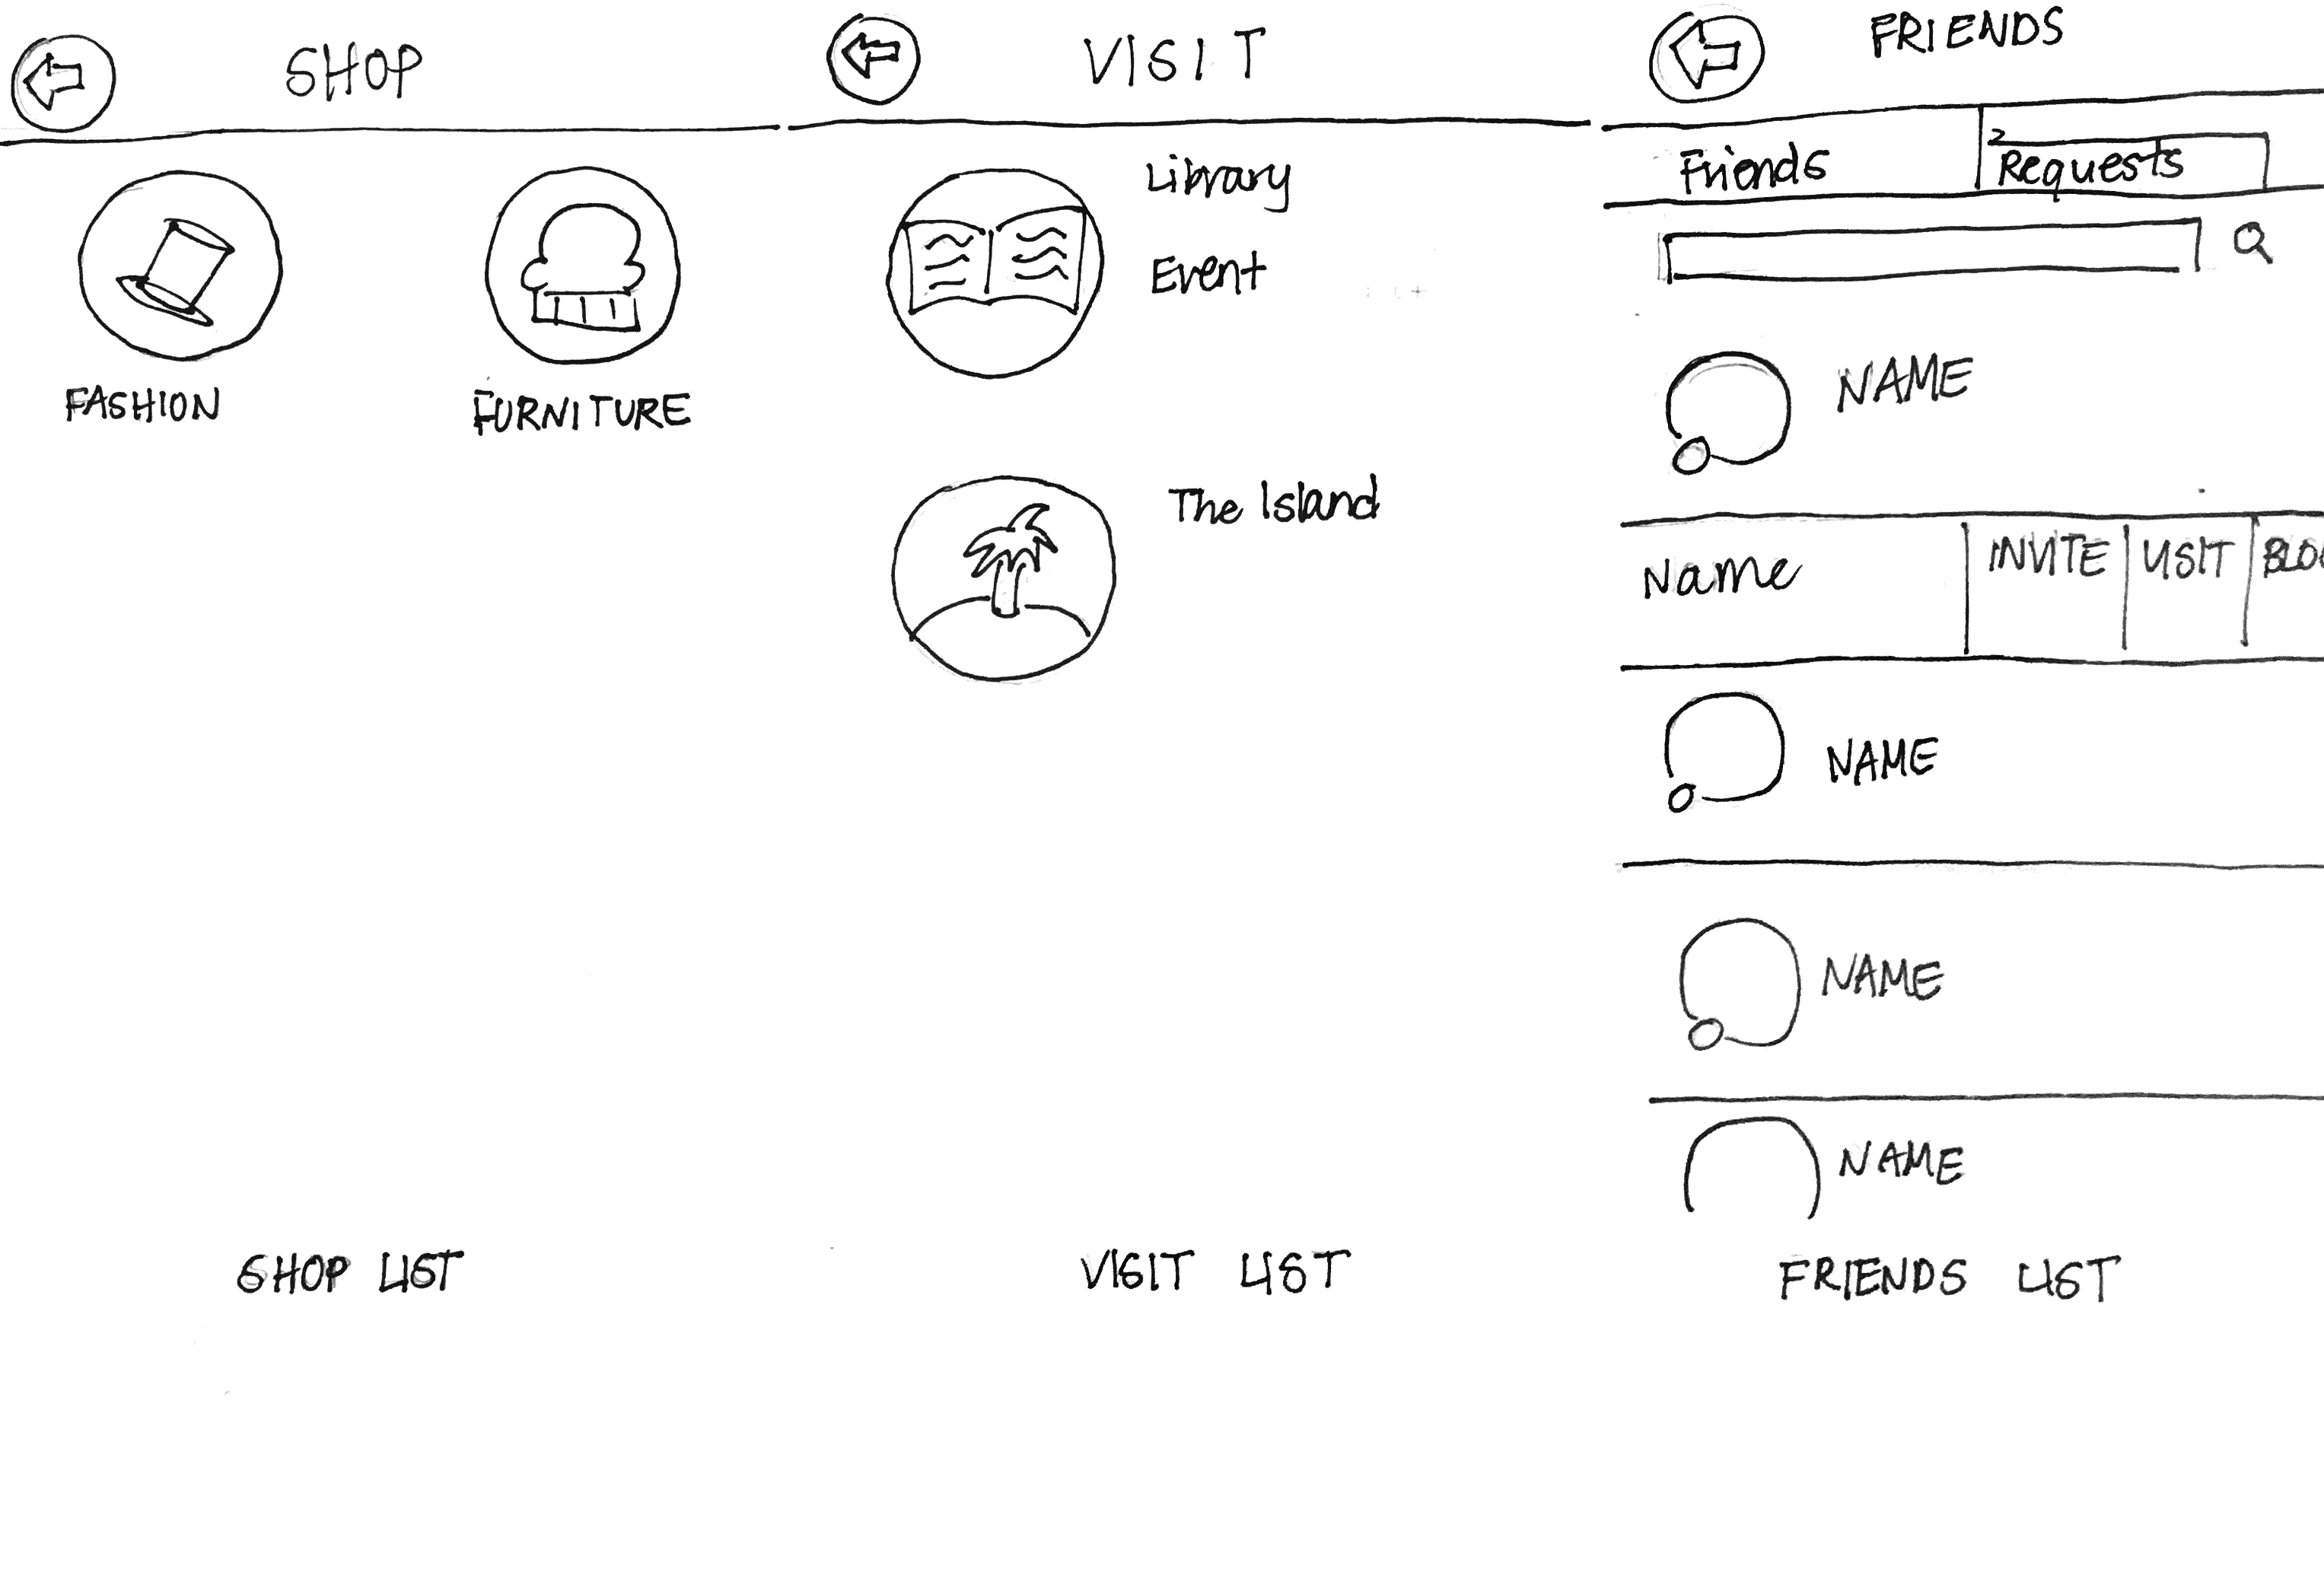 SHOP
FASHION
FURNITURE
SHOP LIST
VISIT
Library
Event
The Island
VISIT LIST
FRIENDS
Friends
2
Requests
NAME
Name INVITE VISIT BLO
NAME
NAME
NAME
FRIENDS LIST